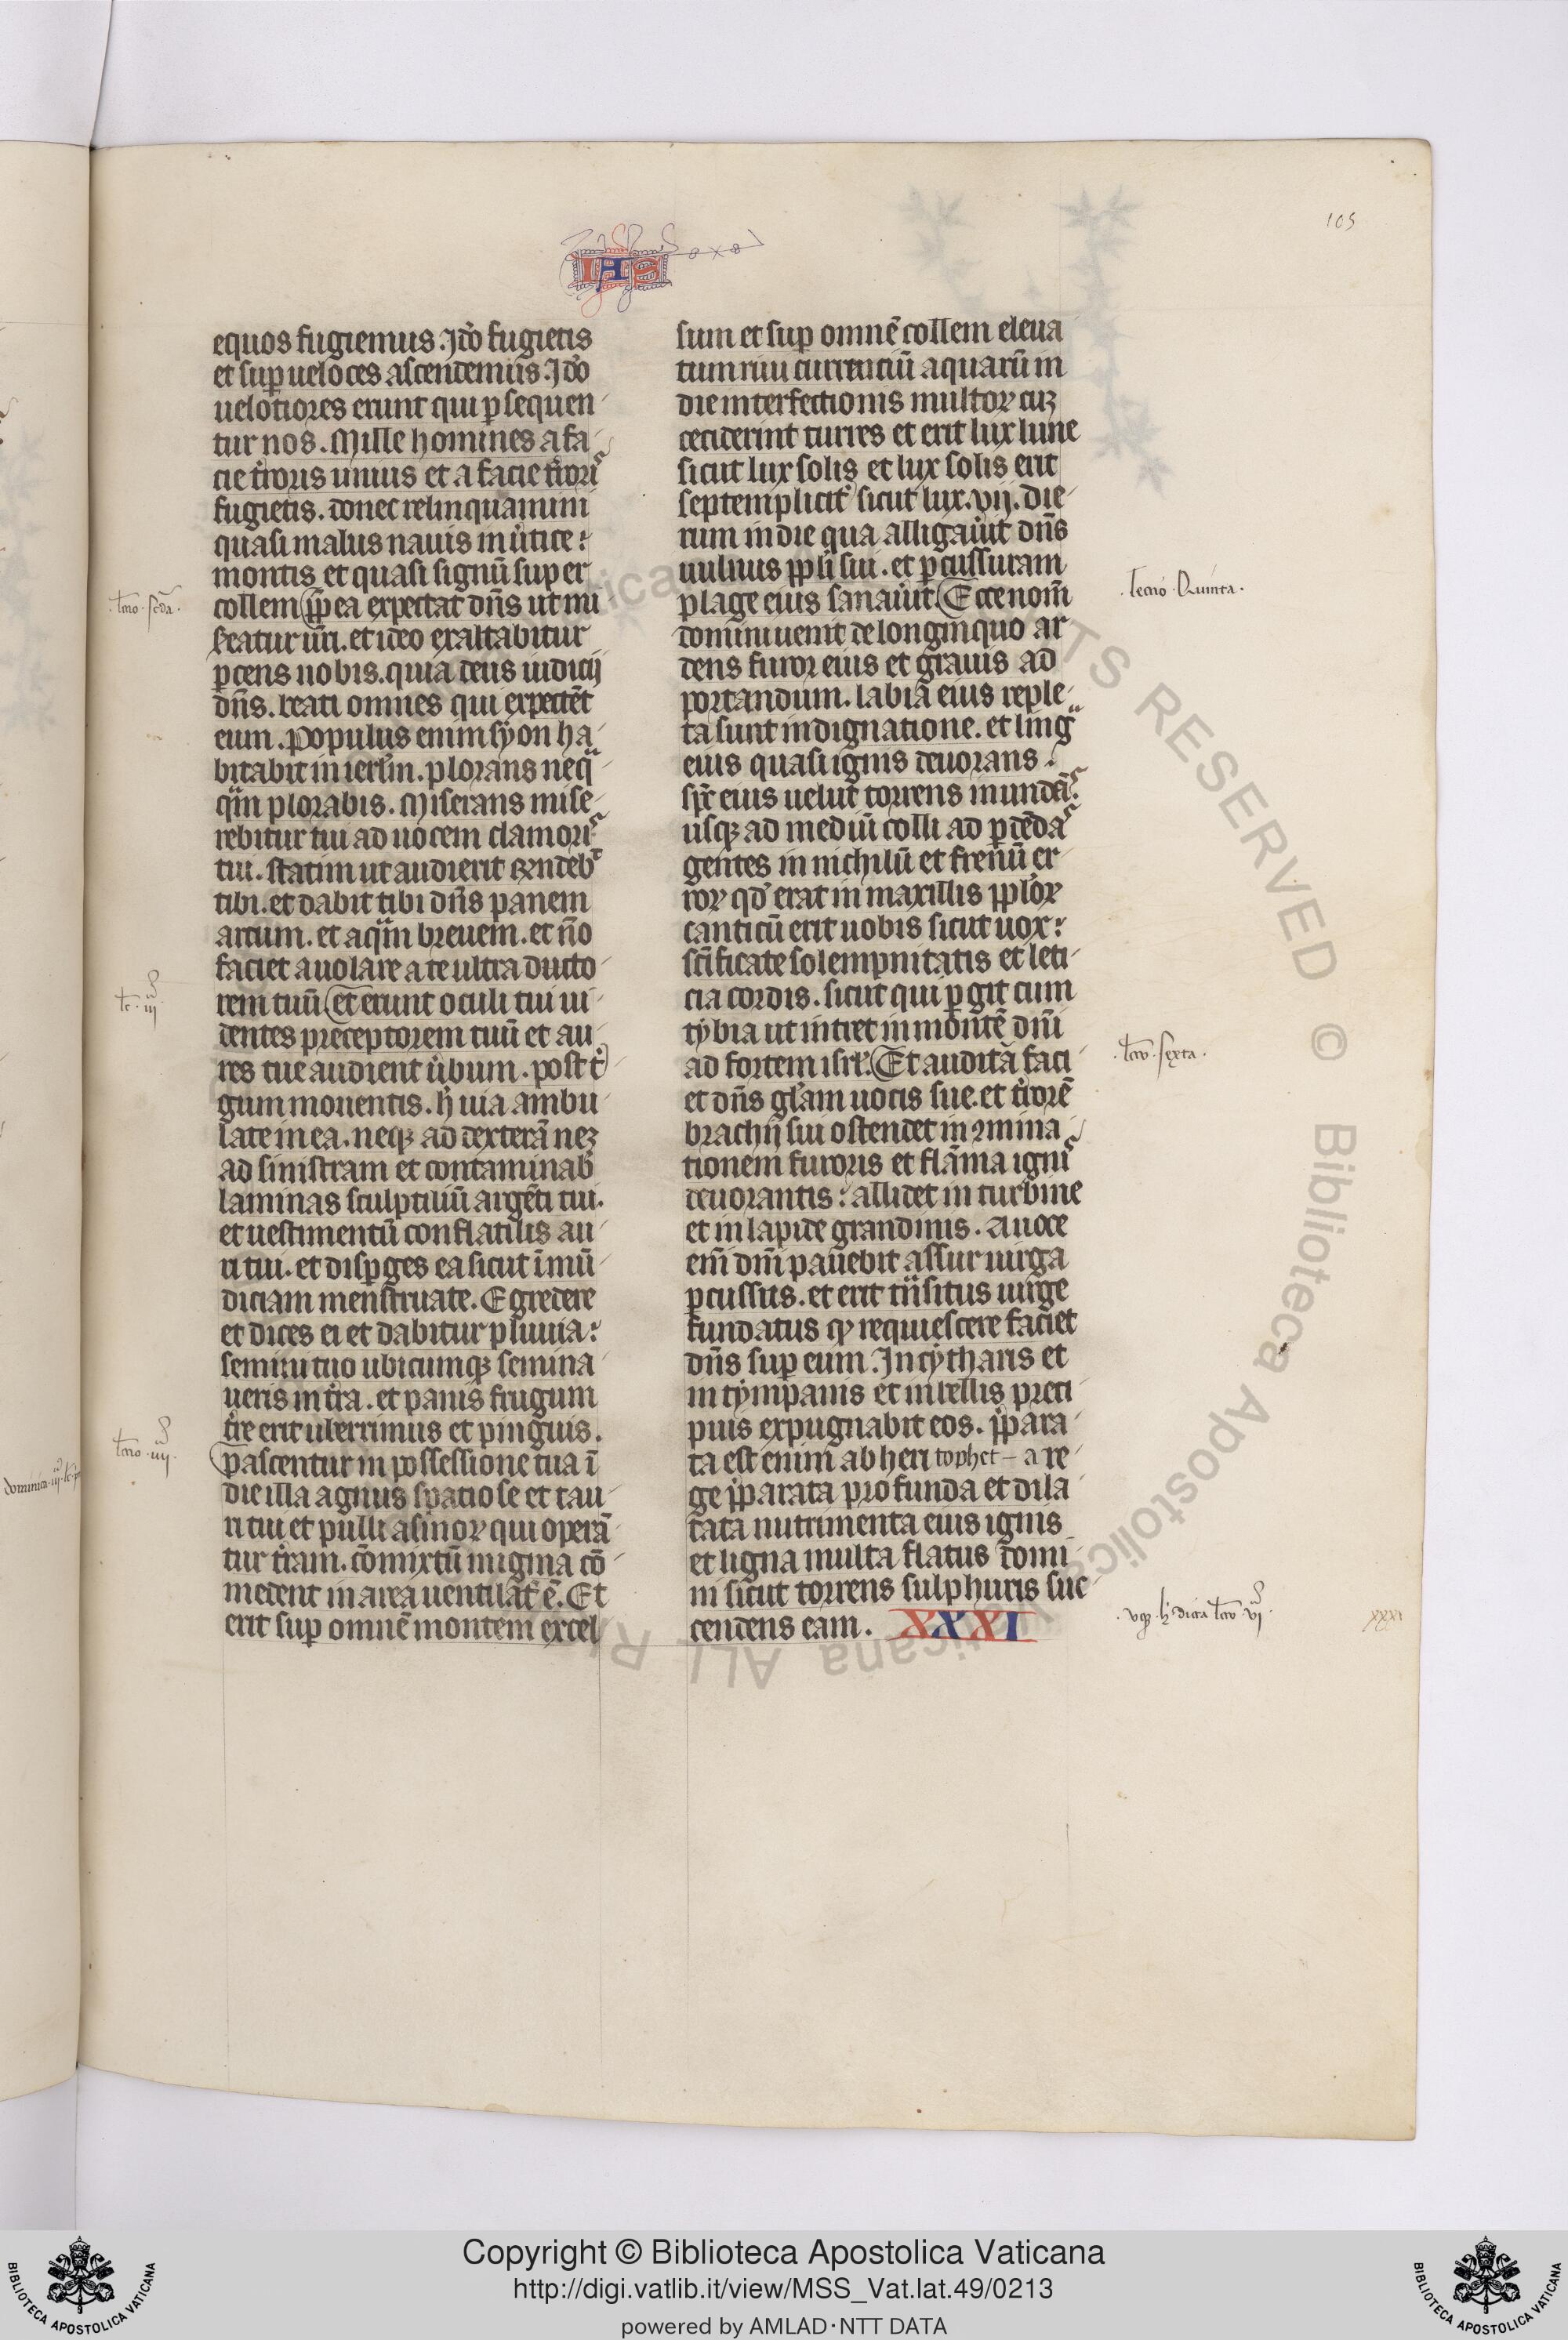 105
IHS
equos fugiemus. Ido fugietis
et sup ueloces ascendemus. Ido
uelotiores erunt qui psequen
tur nos. Mille homines a fa
cie troris unius et a facie trori
fugietis. donec relinquamini
quasi malus nauis in utice:
montis et quasi signū super
collem ppea expectat dns ut mi
sereatur uri. et ideo exaltabitur
pcens uobis. quia deus iudicij
dns. beati omnes qui expectēt
eum. Populus enim syon ha
bitabit in ierlm. plorans neq
qm plorabis. Miserans mise
rebitur tui ad uocem clamori
tui. statim ut audierit rndeb
tibi. et dabit tibi dns panem
artum. et aqm breuem. et nō
faciet auolare a te ultra docto
rem tuū et erunt oculi tui ui
dentes preceptorem tuū et au
res tue audient ubum. post t
gum monentis. h uia ambu
late in ea. neq ad dexterā neq
ad sinistram et contaminab
laminas sculptiliū argēti tui.
et uestimentū conflatilis au
ri tui. et dispges ea sicut īmū
diciam menstruate. Egredere
et dices ei et dabitur pluuia:
semini tuo ubicumq semina
ueris in tra. et panis frugum
tre erit uberrimus et pinguis.
pascentur in possessione tua ī
die illa agnus spatiose et tau
ri tui et pulli asinor qui operā
tur tram. cōmixtū migma cō
medent in area uentilat ē. Et
erit sup omnē montem excel
sum et sup omnē collem eleua
tum riui currentiū aquarū in
die interfectionis multor cuz
ceciderint turres et erit lux lune
sicut lux solis et lux solis erit
septemplicit sicut lux. vij. die
rum in die qua alligauit dns
uulnus ppli sui. et pcussuram
plage eius sanauit. Ecce nom
domini uenit de longinquo ar
dens furor eius et grauis ad
portandum. labia eius reple
ta sunt indignatione. et ling
eius quasi ignis deuorans.
spc eius uelut torrens inundā
usq ad mediū colli ad pdēda
gentes in nichilū et frenū er
ror qd erat in maxillis pplor
canticū erit uobis sicut uox:
scificate solempnitatis et leti
cia cordis. sicut qui pgit cum
tybia ut intret in montē dni
ad fortem isrl. Et auditā faci
et dns glam uocis sue. et trorē
brachij sui ostendet in 9mina
tionem furoris et flāma igni
deuorantis: allidet in turbine
et in lapide grandinis. A uoce
eni dni pauebit assur uirga
pcussus. et erit tnsitus uirge
fundatus q requiescere faciet
dns sup eum. In cytharis et
in tympanis et in bellis preci
puis expugnabit eos. ppara
ta est enim ab heri tophet – a re
ge pparata profunda et dila
tata nutrimenta eius ignis
et ligna multa flatus domi
ni sicut torrens sulphuris suc
cendens eam. XXXI
lcio scda.
lc. iij
lcio. iiij
dominica
lectio Quinta.
lcio. sexta.
XXXI
ALL RIGHTS RESERVED © Biblioteca Apostolica Vaticana
Copyright © Biblioteca Apostolica Vaticana
http://digi.vatlib.it/view/MSS_Vat.lat.49/0213
powered by AMLAD·NTT DATA
BIBLIOTECA APOSTOLICA VATICANA
BIBLIOTECA APOSTOLICA VATICANA